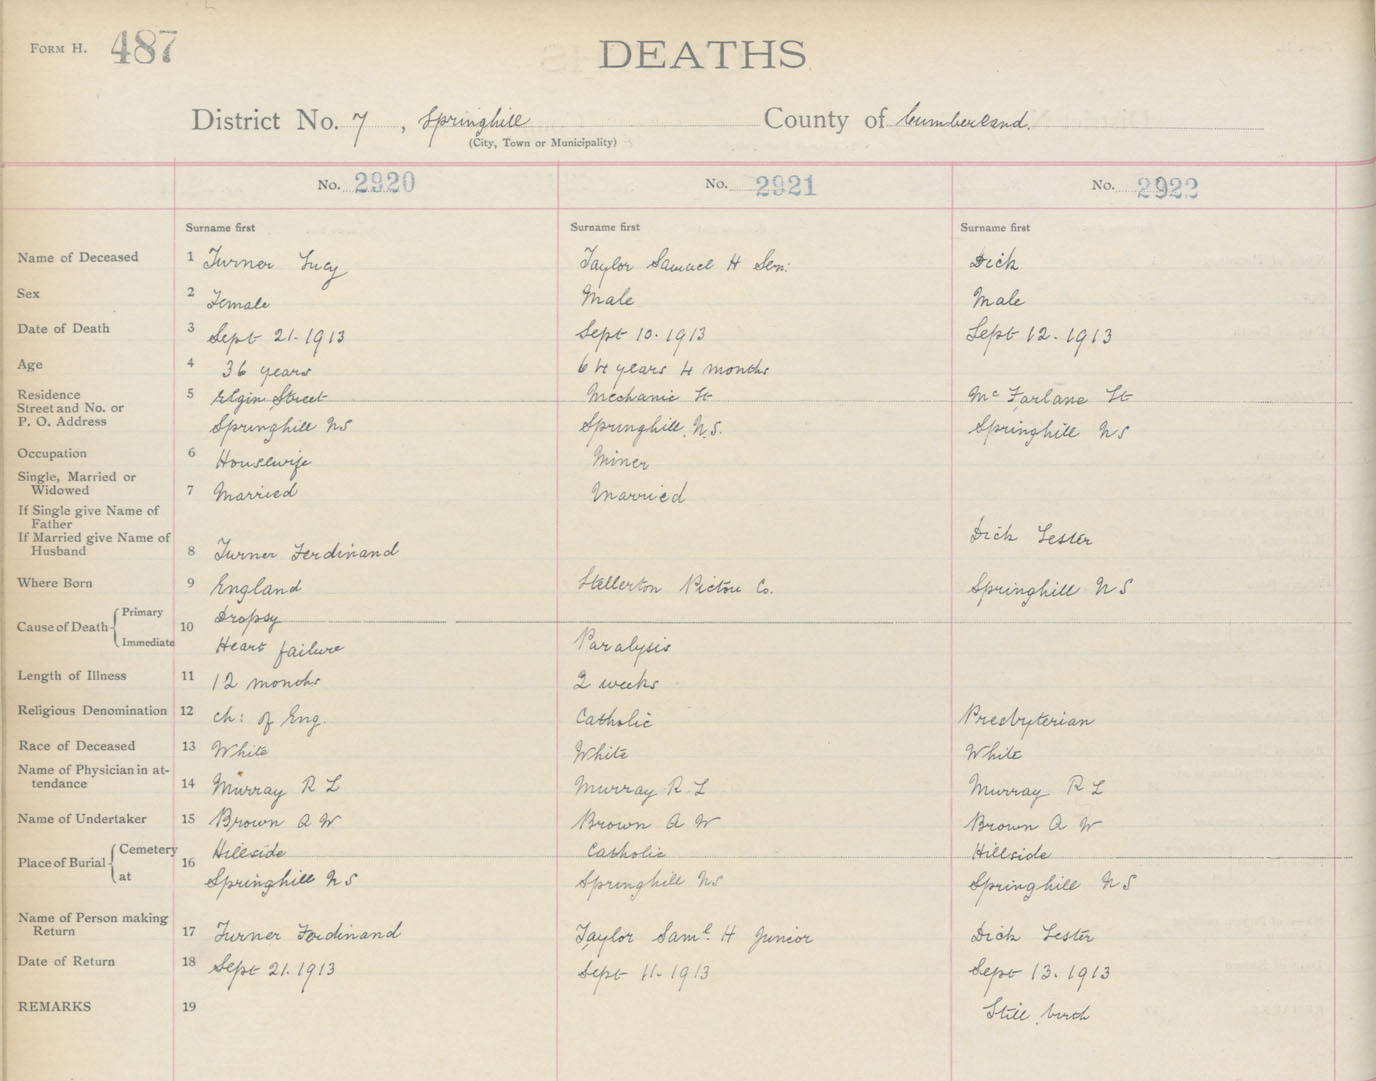 FORM H. 487 DEATHS
District No. 7, Springhill County of Cumberland.
(City, Town or Municipality)
No. 2920 No. 2921 No. 2922
Surname first Surname first Surname first
Name of Deceased 1 Turner Lucy Taylor Samuel H Sen: Dick
Sex 2 Female Male Male
Date of Death 3 Sept 21. 1913 Sept 10. 1913 Sept 12. 1913
Age 4 36 years 64 years 4 months
Residence 5 Elgin Street Mechanic St Mc Farlane St
Street and No. or
P. O. Address Springhill NS Springhill N.S. Springhill NS
Occupation 6 Housewife Miner
Single, Married or
Widowed 7 Married Married
If Single give Name of
Father
If Married give Name of Dick Lester
Husband 8 Turner Ferdinand
Where Born 9 England Stellerton Pictou Co. Springhill NS
Cause of Death Primary 10 Dropsy
Immediate Heart failure Paralysis
Length of Illness 11 12 months 2 weeks
Religious Denomination 12 Ch: of Eng. Catholic Presbyterian
Race of Deceased 13 White White White
Name of Physician in at-
tendance 14 Murray R L Murray R L Murray R L
Name of Undertaker 15 Brown A W Brown A W Brown A W
Place of Burial Cemetery 16 Hillside Catholic Hillside
at Springhill NS Springhill NS Springhill NS
Name of Person making
Return 17 Turner Ferdinand Taylor Saml. H Junior Dick Lester
Date of Return 18 Sept 21. 1913 Sept 11. 1913 Sept 13. 1913
REMARKS 19 Still birth